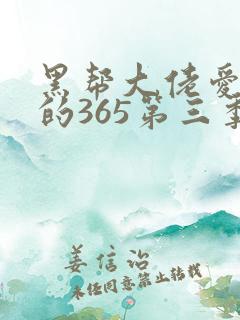 黑帮大佬爱
的365第三季
姜信治
未经同意禁止转载